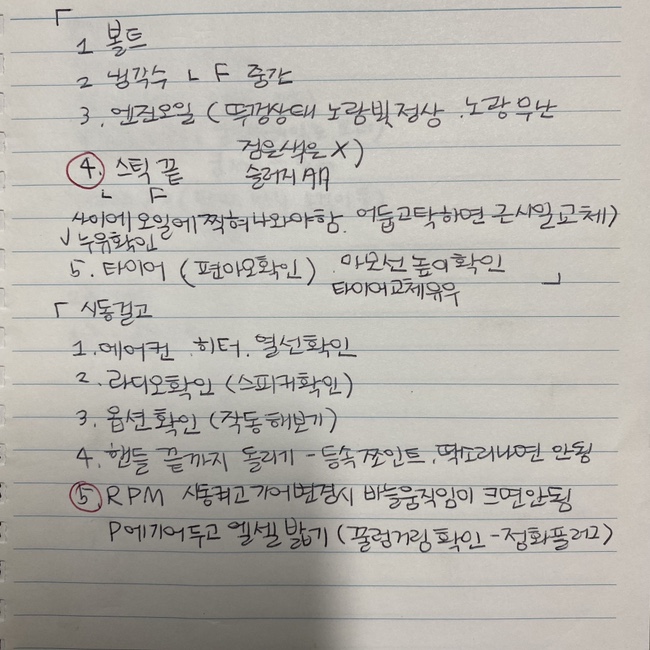 「
1 볼트
2 냉각수 L F 중간
3. 엔진오일 (뚜껑상태 노랑빛정상 .노광무난
검은색은 X)
④. 스틱 끝 슬러지
L F
사이에 오일에 찍혀나와야함. 어둡고탁하면 근시일교체)
√ 누유확인
5. 타이어 (편마모확인) . 마모선 높이확인
타이어교체유무 」
「 시동걸고
1. 에어컨 .히터. 열선확인
2. 라디오확인 (스피커확인)
3. 옵션확인 (작동해보기)
4. 핸들 끝까지 돌리기 - 등속죠인트. 딱소리나면 안됨
⑤ RPM 시동켜고 기어변경시 바늘움직임이 크면안됨
P에기어두고 엑셀 밟기 (꿀럭거림 확인 - 점화플러그)